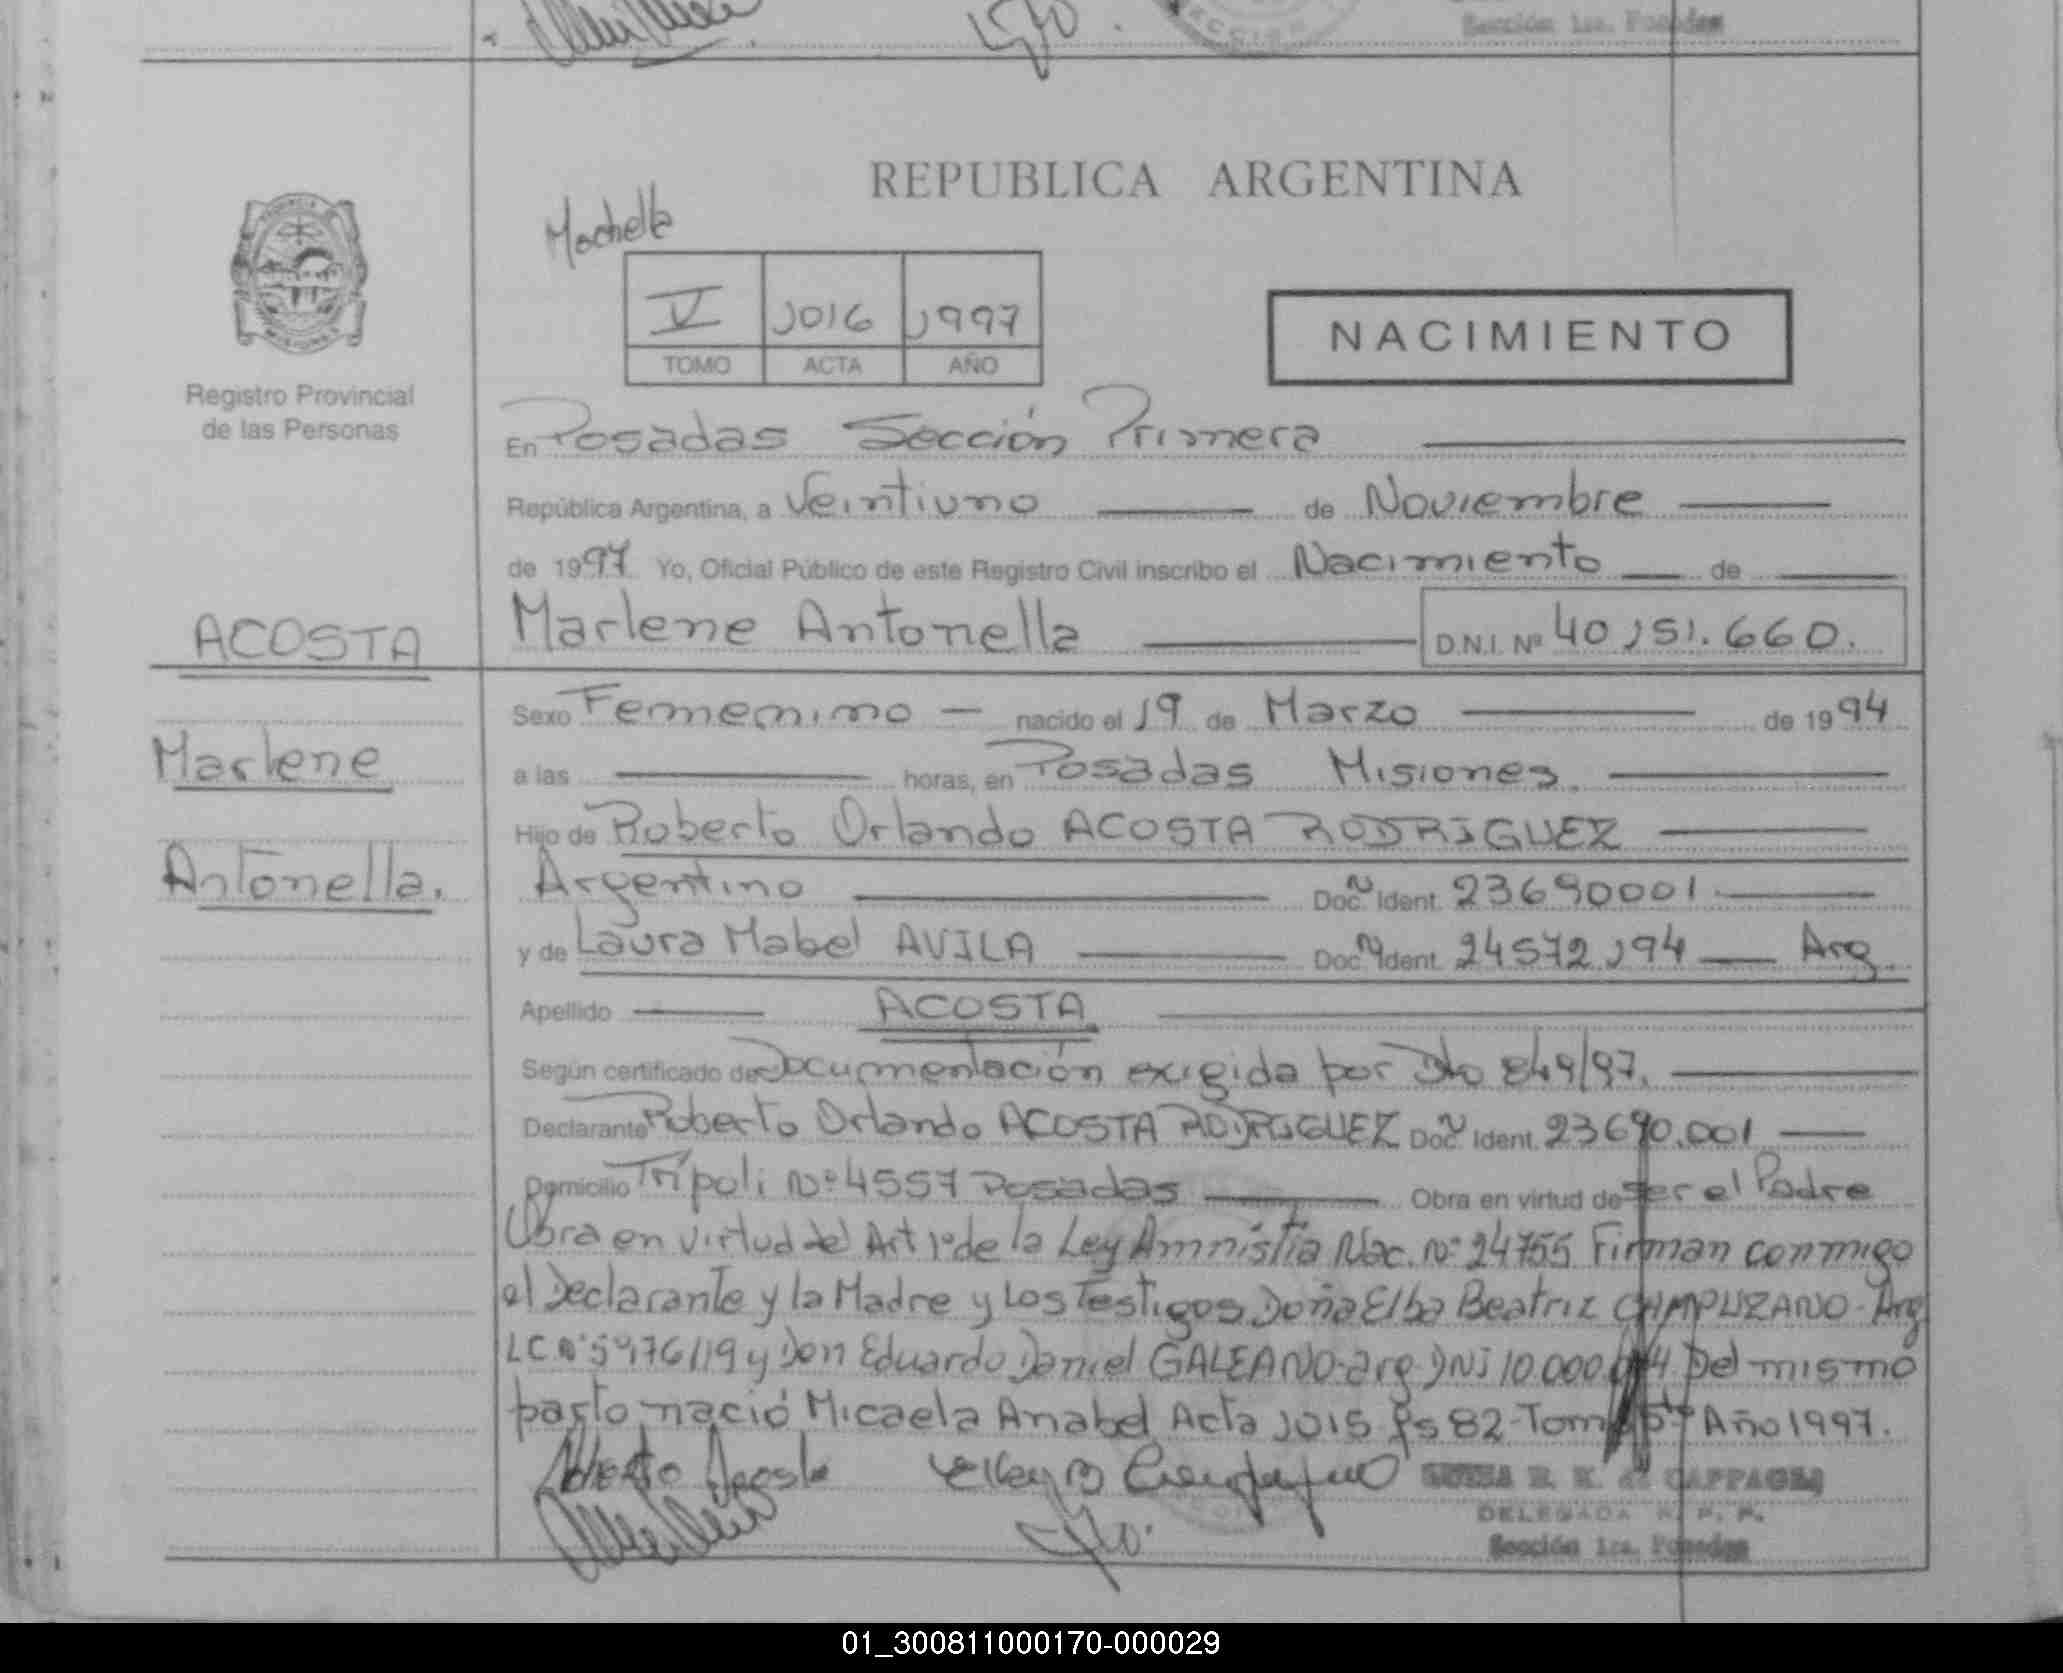 Sección 1ra. Posadas
REPUBLICA ARGENTINA
V 1016 1997
TOMO ACTA AÑO
NACIMIENTO
Registro Provincial
de las Personas
En Posadas Sección Primera
República Argentina, a Veintiuno de Noviembre
de 1997 Yo, Oficial Público de este Registro Civil inscribo el Nacimiento de
ACOSTA
Marlene Antonella D.N.I. Nº 40151.660.
Sexo Femenino nacido el 19 de Marzo de 1994
Marlene
a las horas, en Posadas Misiones.
Hijo de Roberto Orlando ACOSTA RODRIGUEZ
Antonella.
Argentino Doc. Ident. 23690001
y de Laura Mabel AVILA Doc. Ident. 24572194 Arg.
Apellido ACOSTA
Según certificado de Documentación exigida por Dto 849/97.
Declarante Roberto Orlando ACOSTA RODRIGUEZ Doc. Ident. 23690.001
Domicilio Trípoli Nº 4557 Posadas Obra en virtud de ser el Padre
Obra en virtud del Art 1º de la Ley Amnistia Nac. Nº 24755 Firman conmigo
el Declarante y la Madre y los Testigos Doña Elba Beatriz CAMPUZANO - Arg
LC Nº y Don Eduardo Daniel GALEANO - arg - DNI 10.000. Del mismo
parto nació Micaela Anabel Acta 1015 fs 82 - Tomo Año 1997.
Roberto Acosta
DELEGADA R. P. P.
Sección 1ra. Posadas
01_300811000170-000029